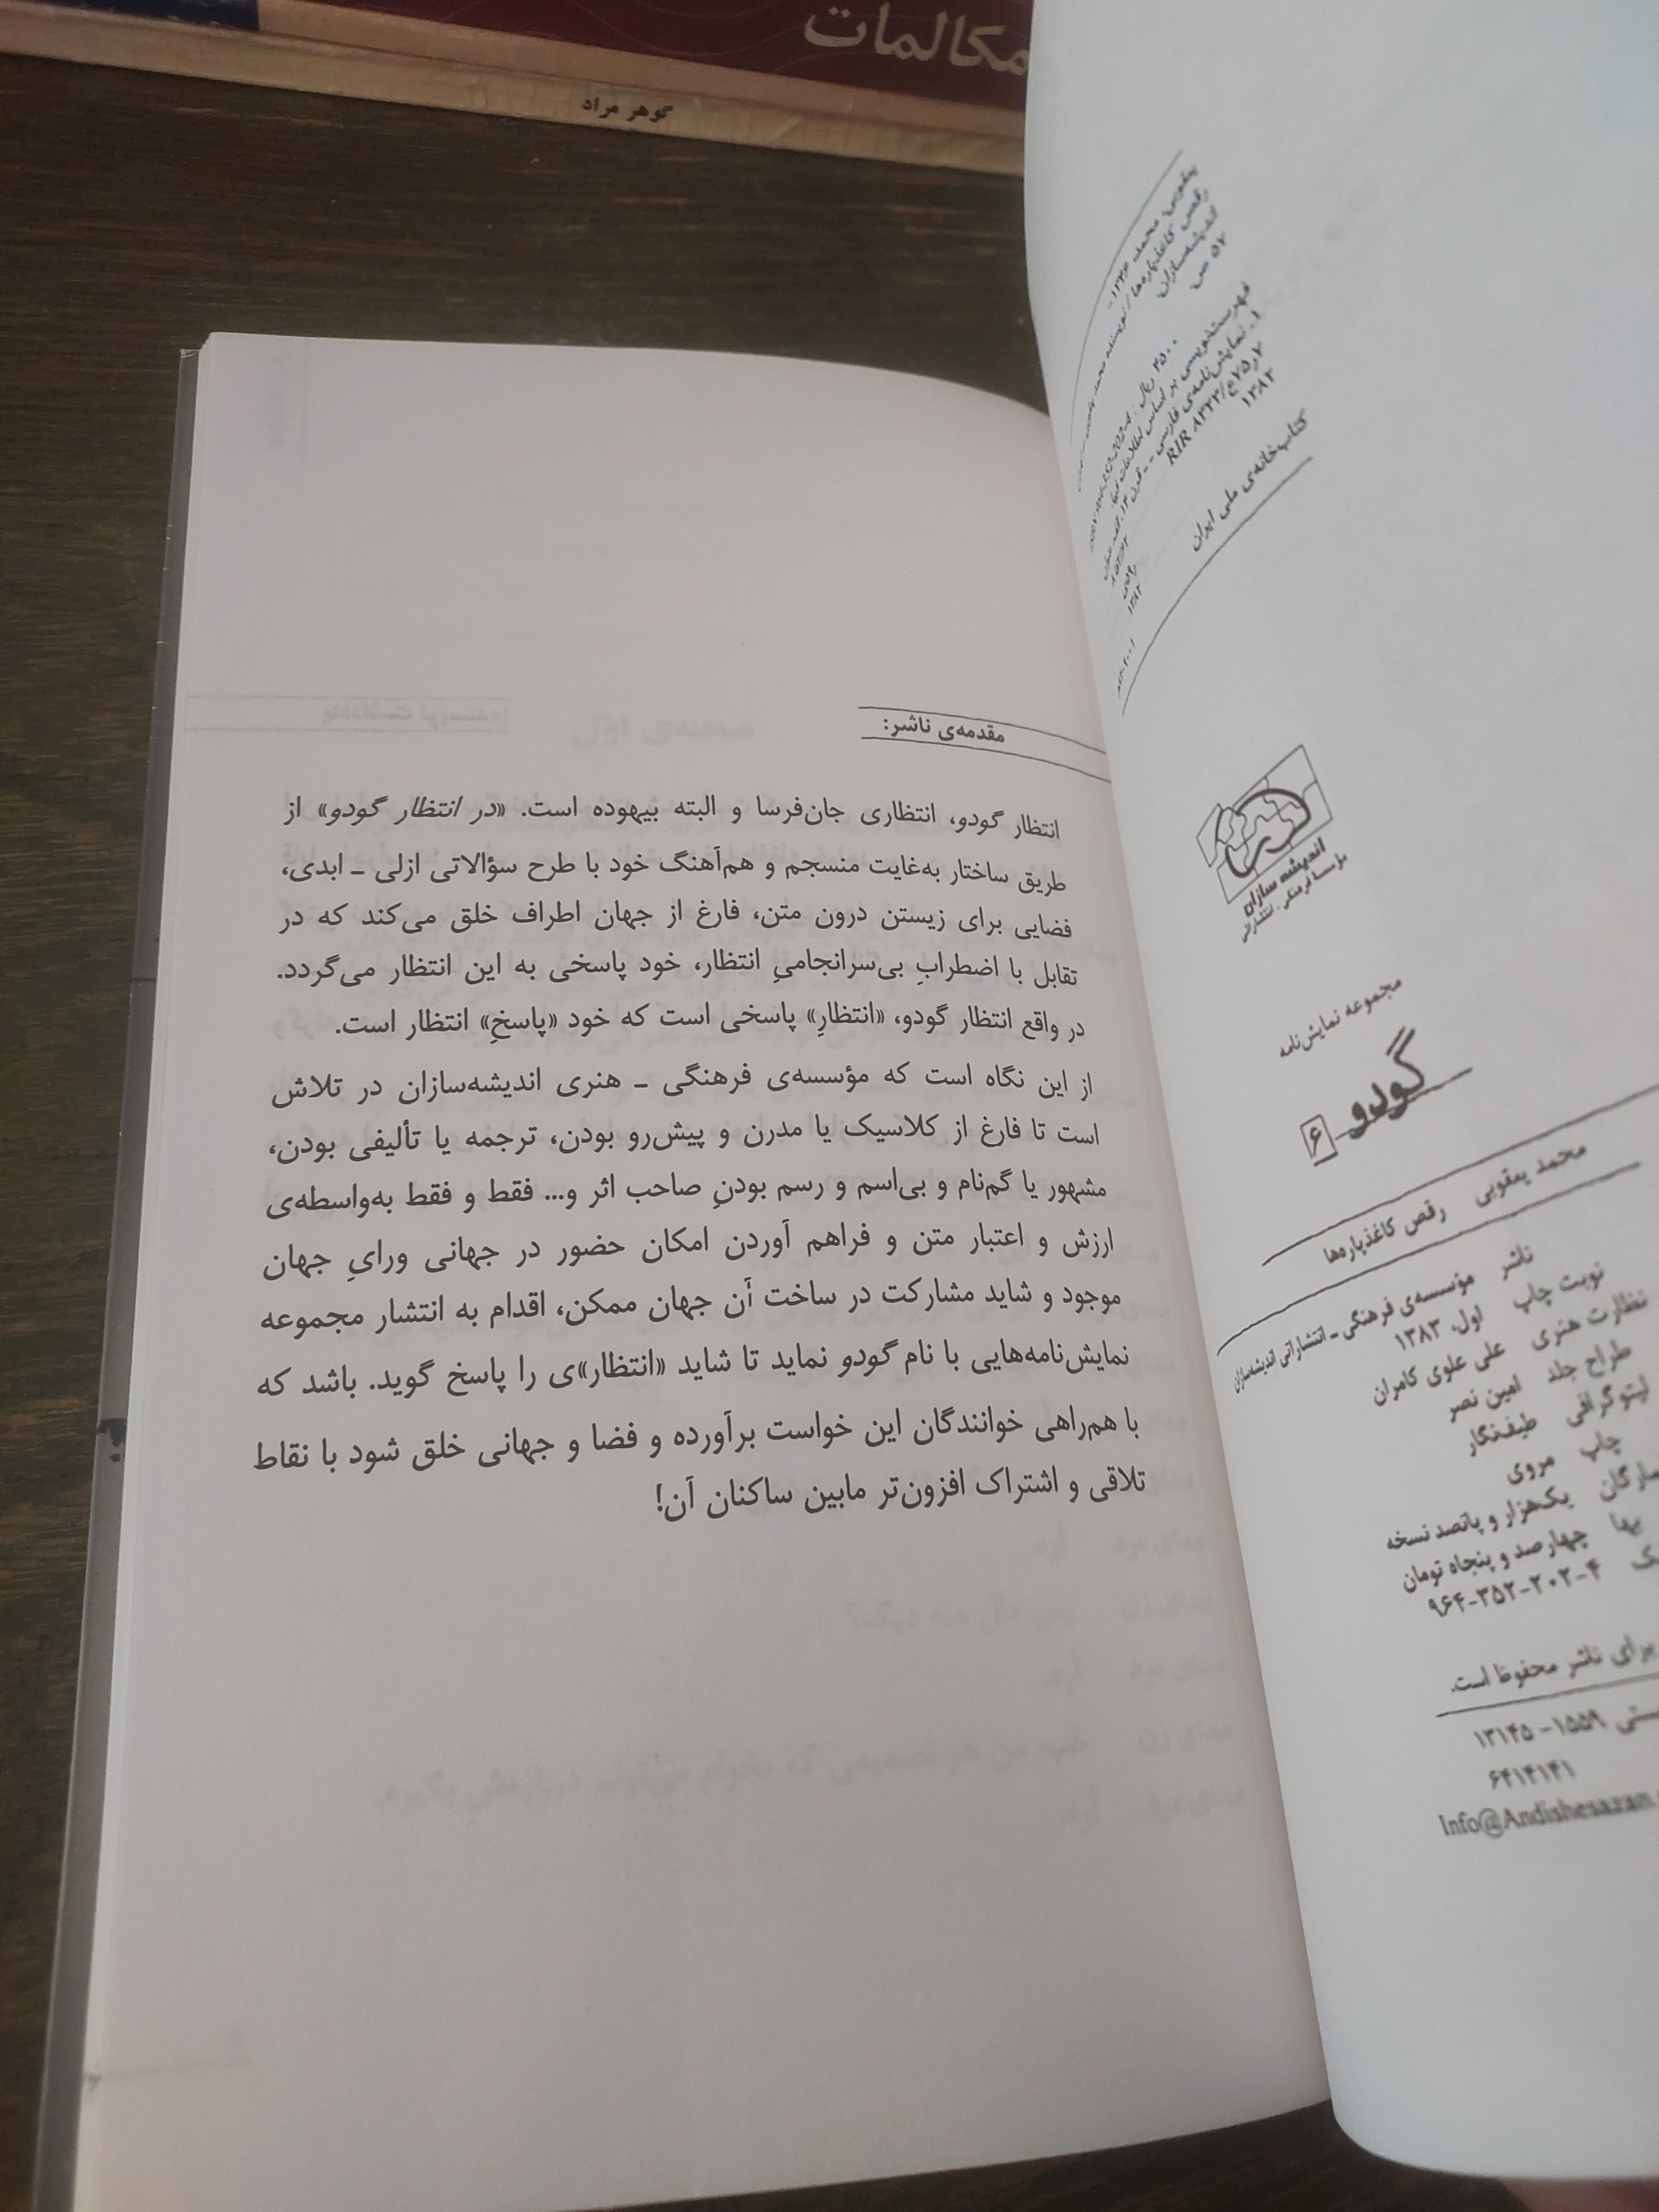 مکالمات
گوهر مراد
یعقوبی، محمد، ۱۳۴۶-
رقص کاغذپاره‌ها / نویسنده محمد
اندیشه‌سازان،
۵۷ ص.
۴۵۰۰ ریال
فهرست‌نویسی بر اساس اطلاعات فیپا.
۱. نمایش‌نامه‌ی فارسی -- قرن ۱۴.
۱۳۸۲
کتاب‌خانه‌ی ملی ایران
اندیشه سازان
مؤسسهٔ فرهنگی انتشاراتی
مجموعه نمایش‌نامه
گودو ۶
محمد یعقوبی رقص کاغذپاره‌ها
ناشر مؤسسه‌ی فرهنگی ـ انتشاراتی اندیشه‌سازان
نوبت چاپ اول، ۱۳۸۳
نظارت هنری علی علوی کامران
طراح جلد امین نصر
لیتوگرافی طیف‌نگار
چاپ مروی
یک‌هزار و پانصد نسخه
بها چهارصد و پنجاه تومان
۹۶۴-۳۵۲-۲۰۲-۴
برای ناشر محفوظ است.
۱۳۱۴۵-۱۵۵۹
۶۴۱۴۱۴۱
Info@Andishesazan.
مقدمه‌ی ناشر:
انتظار گودو، انتظاری جان‌فرسا و البته بیهوده است. «در انتظار گودو» از
طریق ساختار به‌غایت منسجم و هم‌آهنگ خود با طرح سؤالاتی ازلی ـ ابدی،
فضایی برای زیستن درون متن، فارغ از جهان اطراف خلق می‌کند که در
تقابل با اضطرابِ بی‌سرانجامیِ انتظار، خود پاسخی به این انتظار می‌گردد.
در واقع انتظار گودو، «انتظارِ» پاسخی است که خود «پاسخِ» انتظار است.
از این نگاه است که مؤسسه‌ی فرهنگی ـ هنری اندیشه‌سازان در تلاش
است تا فارغ از کلاسیک یا مدرن و پیش‌رو بودن، ترجمه یا تألیفی بودن،
مشهور یا گم‌نام و بی‌اسم و رسم بودنِ صاحب اثر و... فقط و فقط به‌واسطه‌ی
ارزش و اعتبار متن و فراهم آوردن امکان حضور در جهانی ورایِ جهان
موجود و شاید مشارکت در ساخت آن جهان ممکن، اقدام به انتشار مجموعه
نمایش‌نامه‌هایی با نام گودو نماید تا شاید «انتظار»ی را پاسخ گوید. باشد که
با هم‌راهی خوانندگان این خواست برآورده و فضا و جهانی خلق شود با نقاط
تلاقی و اشتراک افزون‌تر مابین ساکنان آن!